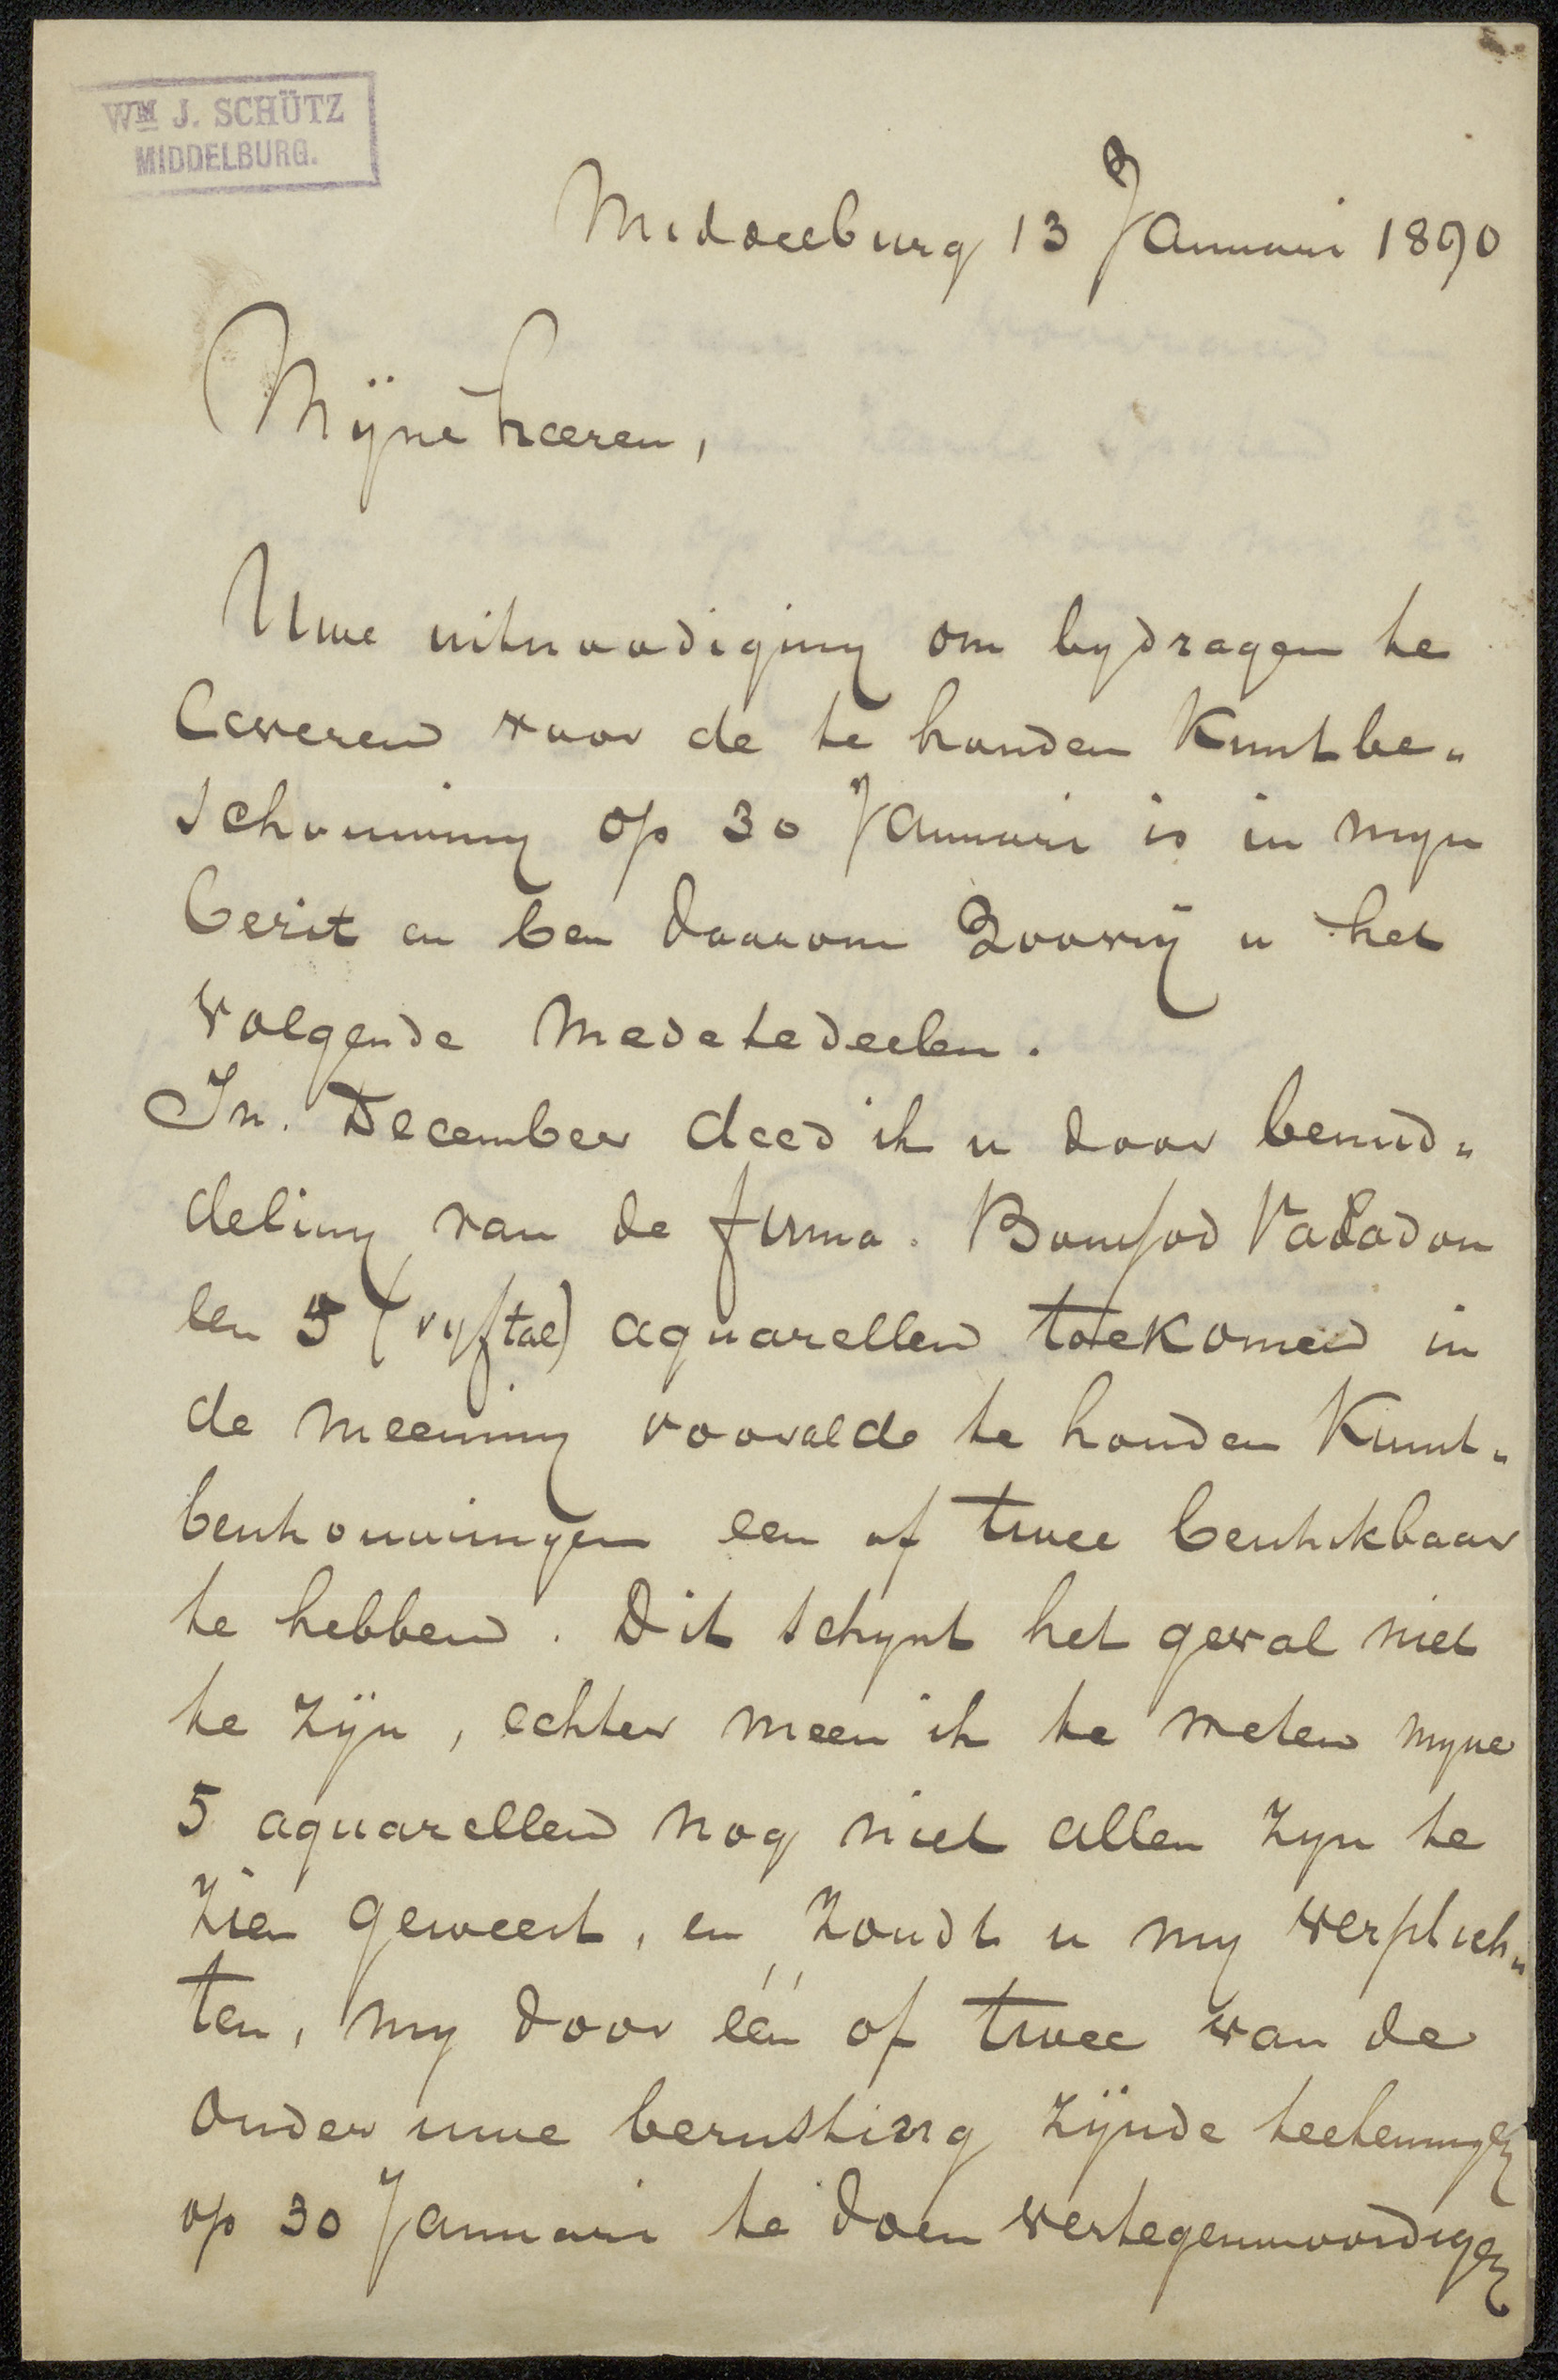 WM J. SCHÜTZ
MIDDELBURG.
Middelburg 13 Januari 1890
Mijne heeren,
Uwe uitnoodiging om bydragen te
leveren voor de te houden Kunstbe„
schouwing op 30 Januari is in myn
bezit en ben daarom Zoovrij u het
volgende mede te deelen.
In December deed ik u door bemid„
deling van de firma. Boussod Valadon
een 5 (vyftal) aquarellen toekomen in
de meening voor alde te houden Kunst„
beschouwingen een of twee beschikbaar
te hebben. Dit schynt het geval niet
te zijn, echter meen ik te weten myne
5 aquarellen nog niet allen zyn te
zien geweest, en zoudt u my verplich„
ten, my door één of twee van de
onder uwe berusting zijnde teekeningen
op 30 Januari te doen vertegenwoordigen